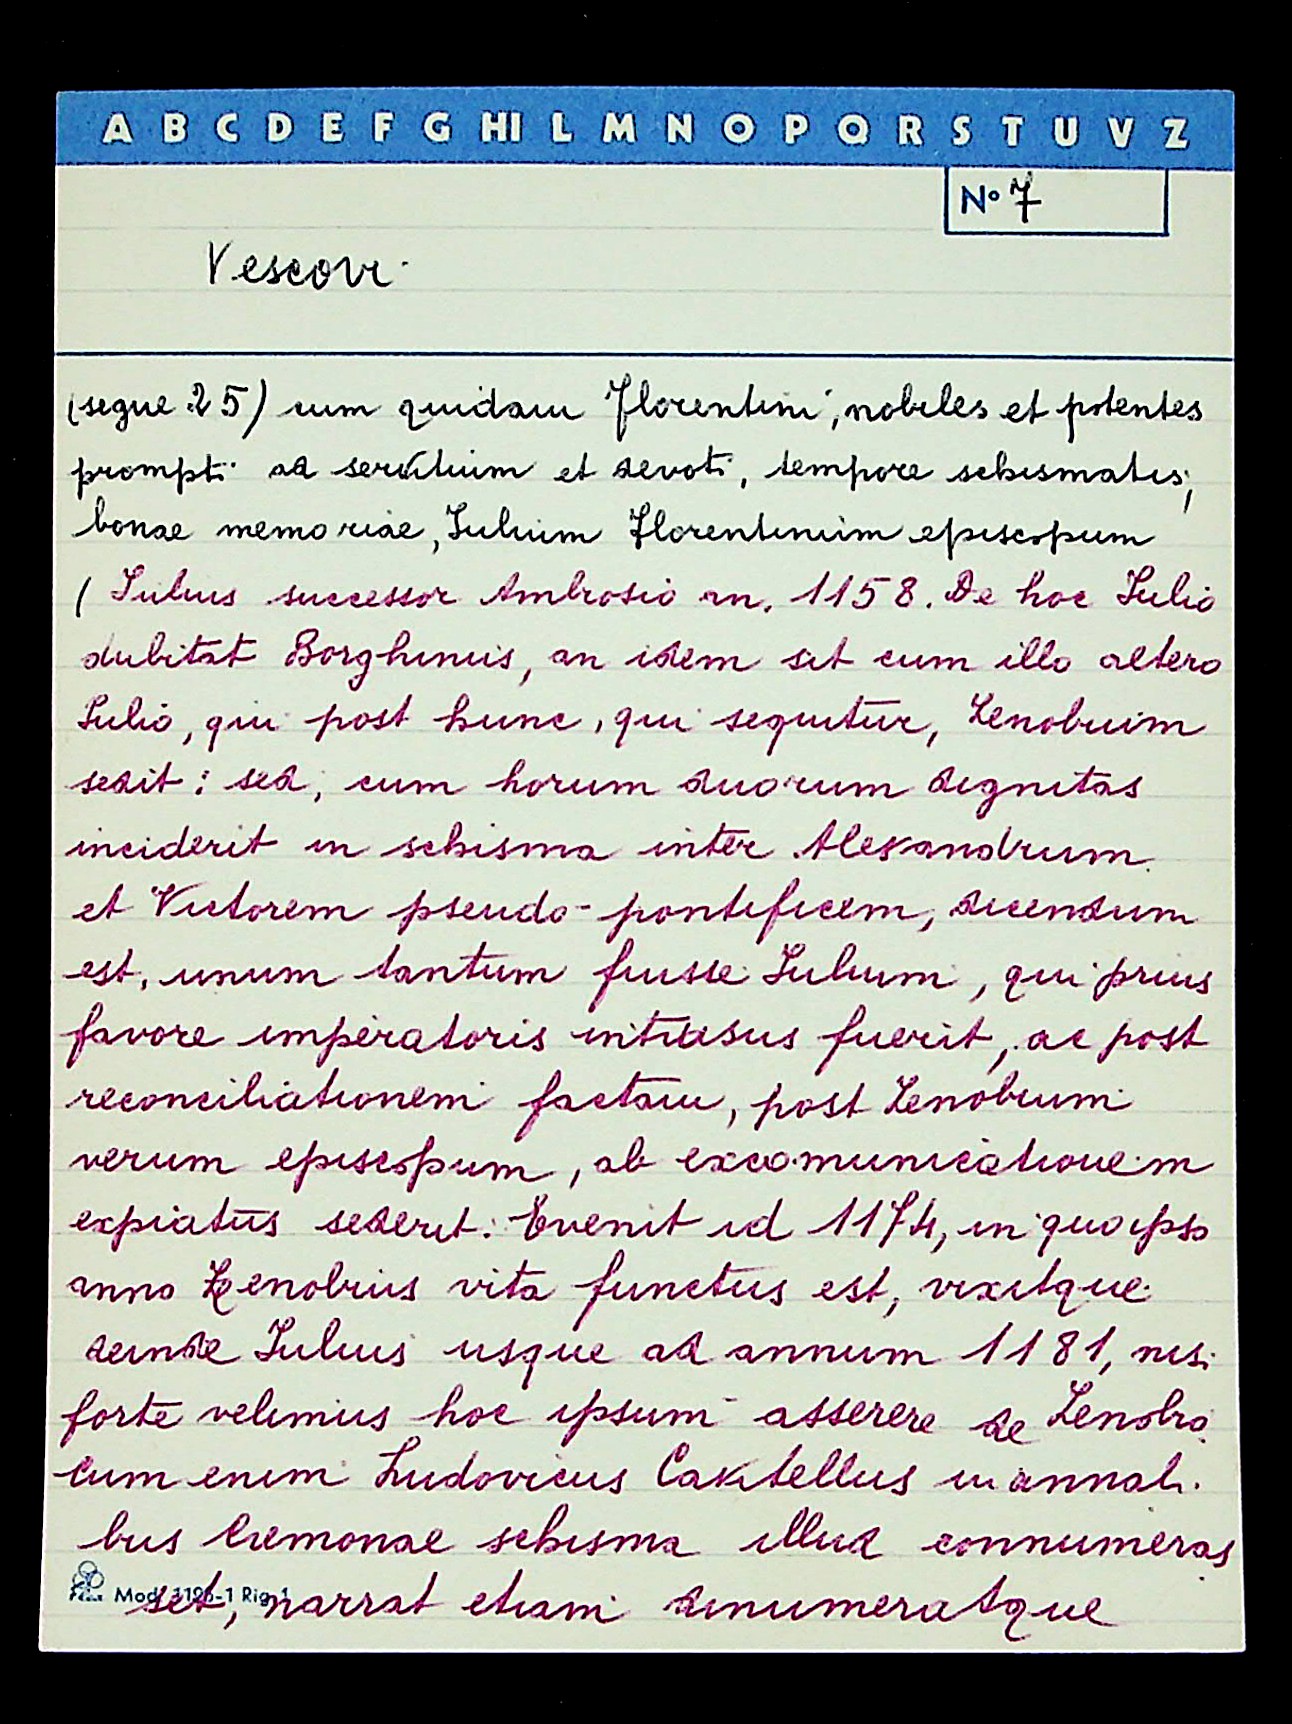 A B C D E F G HI L M N O P Q R S T U V Z
N° 7
Vescovi
(segue 25) cum quidam Florentini, nobiles et potentes
prompti ad servitium et devoti, tempore schismatis,
bonae memoriae, Iulium Florentinum episcopum
(Iulius successor Ambrosio an. 1158. De hoc Iulio
dubitat Borghinus, an idem sit cum illo altero
Iulio, qui post hunc, qui sequitur, Zenobium
sedit: sed, cum horum duorum dignitas
inciderit in schisma inter Alexandrum
et Victorem pseudo-pontificem, dicendum
est, unum tantum fuisse Iulium, qui prius
favore imperatoris intrusus fuerit, ac post
reconciliationem factam, post Zenobium
verum episcopum, ab excomunicationem
expiatus sederit. Evenit id 1174, in quo ipso
anno Zenobius vita functus est, vixitque
deinde Iulius usque ad annum 1181, nisi
forte velimus hoc ipsum asserere de Zenobio.
Cum enim Ludovicus Cavitellus in annali-
bus Cremonae schisma illud connumeras
set, narrat etiam dinumeratque
Mod. 1196-1 Rig. 1